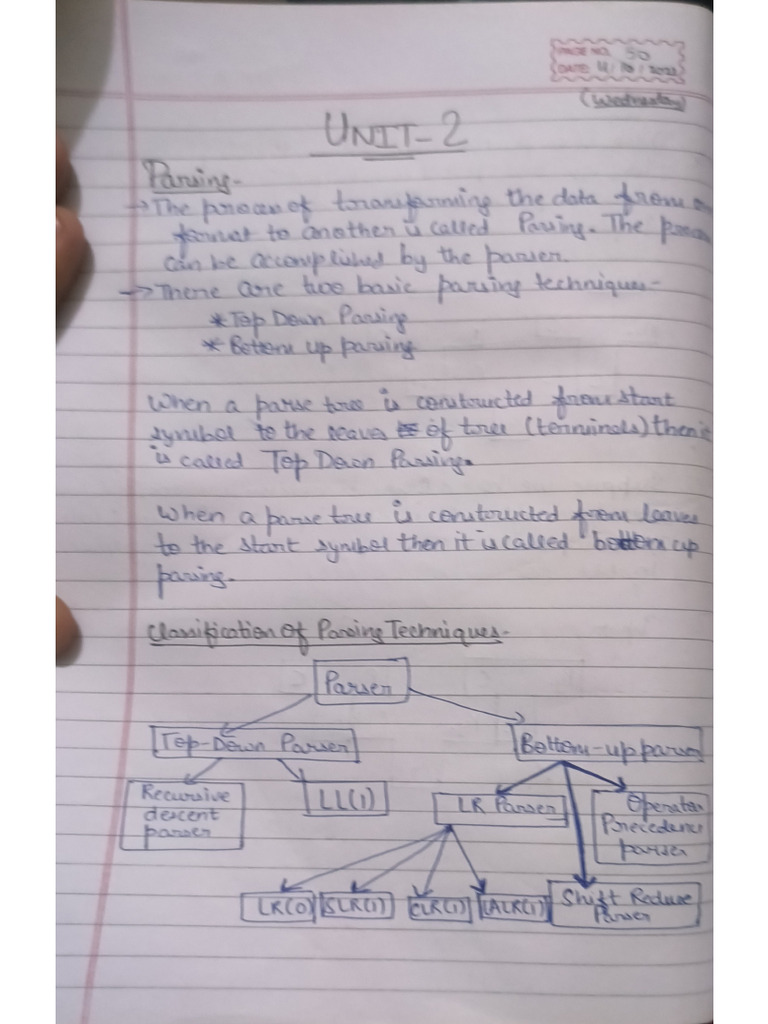 PAGE NO. 50
DATE: 11/10/2023
(Wednesday)
UNIT-2
Parsing-
→ The process of transforming the data from
format to another is called Parsing. The
can be accomplished by the parser.
→ There are two basic parsing techniques-
* Top Down Parsing
* Bottom up parsing
When a parse tree is constructed from start
symbol to the leaves of tree (terminals) then it
is called Top Down Parsing.
When a parse tree is constructed from leaves
to the start symbol then it is called bottom up
parsing.
Classification Of Parsing Techniques-
Parser
Top-Down Parser
Bottom-up parser
Recursive
descent
parser
LL(1)
LR Parser
Operator
Precedence
parser
LR(0)
SLR(1)
CLR(1)
LALR(1)
Shift Reduse
Parser